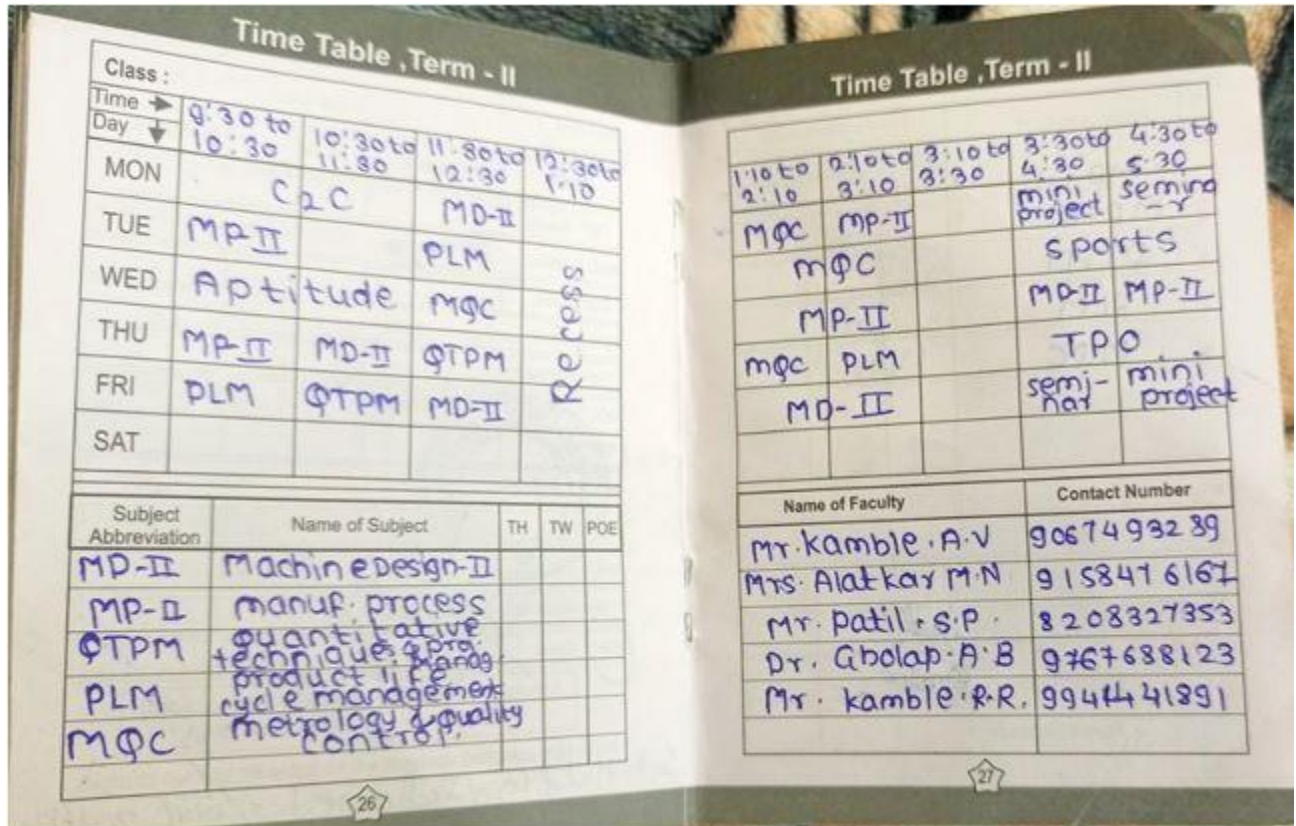 Time Table ,Term - II
Class :
Time
Day
9:30 to 10:30
10:30 to 11:30
11:30 to 12:30
12:30 to 1:10
MON C2C MD-II
TUE MP-II PLM
WED Aptitude MQC
THU MP-II MD-II QTPM
FRI PLM QTPM MD-II
SAT
Recess
Subject Abbreviation Name of Subject TH TW POE
MD-II Machine Design-II
MP-II manuf. process
QTPM quantitative
technique & pro. manag.
PLM product life
cycle management
MQC metrology & quality
control.
26
Time Table ,Term - II
1:10 to 2:10
2:10 to 3:10
3:10 to 3:30
3:30 to 4:30
4:30 to 5:30
MQC MP-II mini project seminar
MQC sports
MP-II MD-II MP-II
MQC PLM TPO
MD-II semi-nar mini project
Name of Faculty Contact Number
Mr. Kamble . A.V 9067493289
Mrs. Alatkar M.N 9158476167
Mr. Patil . S.P. 8208327353
Dr. Gholap . A.B 9767688123
Mr. kamble . R.R.
27